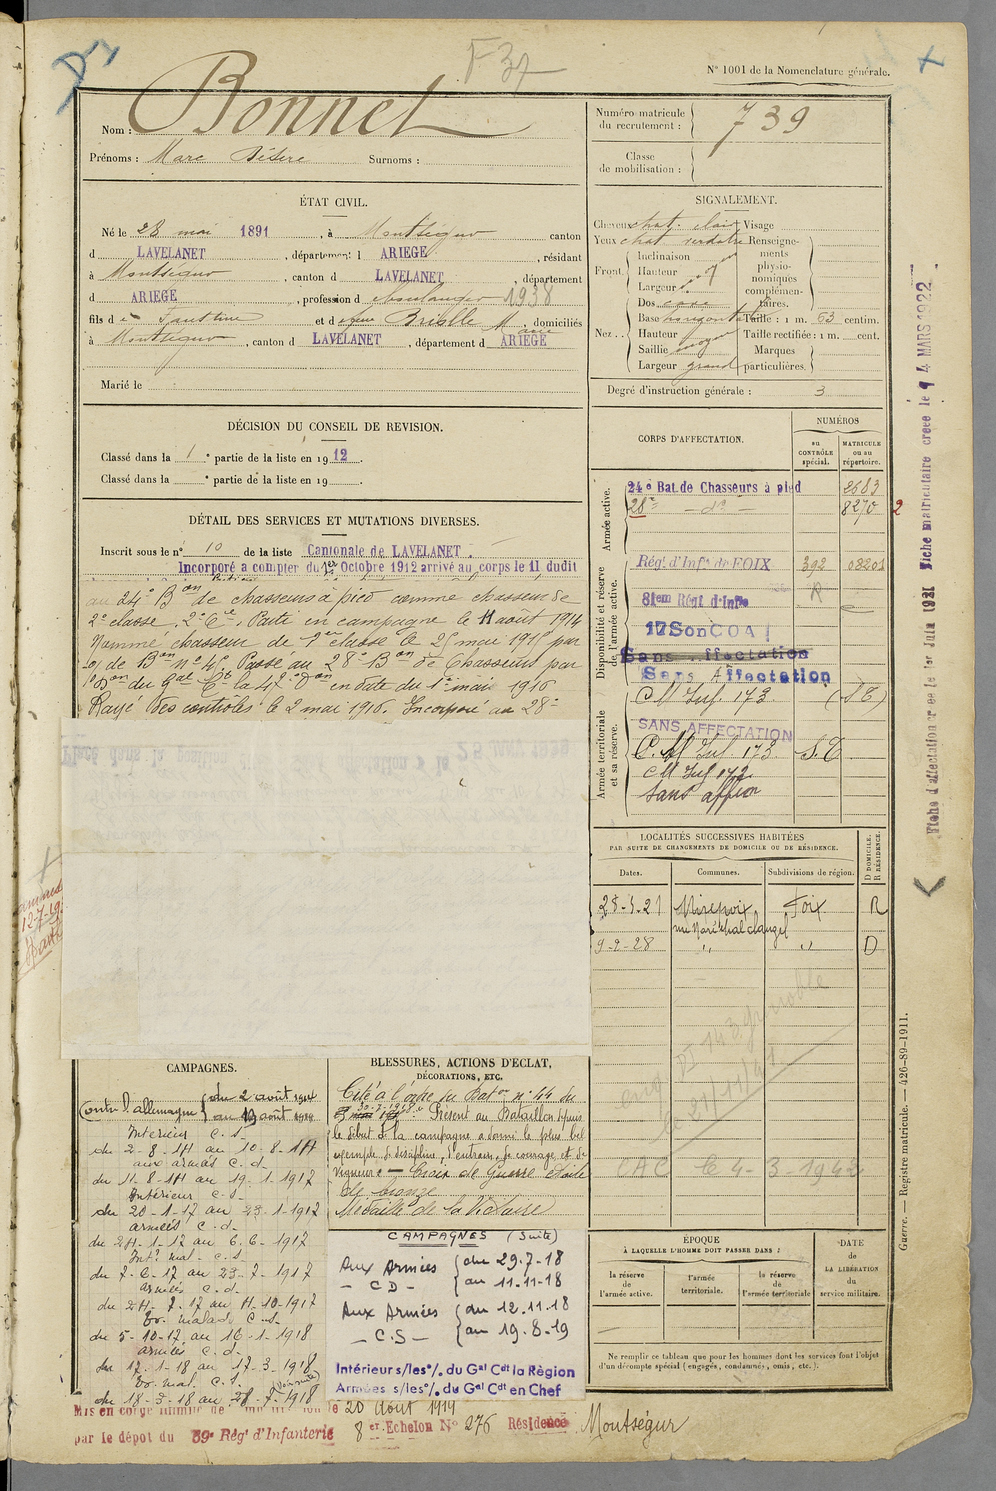 F 37
N° 1001 de la Nomenclature générale.
Nom : Bonnet
Prénoms : Marc Désiré Surnoms :
Numéro matricule du recrutement : 739
Classe de mobilisation :
ÉTAT CIVIL.
Né le 28 mai 1891, à Montségur canton
d LAVELANET, département d ARIEGE, résidant
à Montségur, canton d LAVELANET, département
d ARIEGE, profession d 1938
fils d e Faustin et d e Marie, domiciliés
à Montségur, canton d LAVELANET, département d ARIEGE
Marié le
SIGNALEMENT.
Cheveux chat. clair Visage
Yeux chat verdatre Renseigne-
Front. Inclinaison ments
Hauteur physio-
Largeur nomiques
complémen-
Nez. Dos cave taires.
Base horizontale Taille : 1 m. 63 centim.
Hauteur Taille rectifiée : 1 m. cent.
Saillie moyen Marques
Largeur grand particulières.
Degré d'instruction générale : 3
DÉCISION DU CONSEIL DE REVISION.
Classé dans la 1e partie de la liste en 1912.
Classé dans la e partie de la liste en 19 .
DÉTAIL DES SERVICES ET MUTATIONS DIVERSES.
Inscrit sous le n° 10 de la liste Cantonale de LAVELANET.
Incorporé a compter du 1er Octobre 1912 arrivé au corps le 11 dudit
au 24e Bon de chasseurs à pied comme chasseur de
2e classe. 2e Cie. Parti en campagne le 11 août 1914
Nommé chasseur de 1ère classe le 25 mai 1915 par
de Bon n° 45. Passé au 28e Bon de Chasseurs par
on du Gal Ct la 47e Don en date du 1er mai 1916
Rayé des contrôles le 2 mai 1916. Incorporé au 28e
CORPS D'AFFECTATION.
NUMÉROS
au CONTRÔLE spécial.
MATRICULE ou au répertoire.
Armée active.
24e Bat. de Chasseurs à pied 2583
28e - do - 8270 2
Disponibilité et réserve de l'armée active.
Régt d'Infie de FOIX 392 08201
81em Régt d'Infie R
17 Son COA
Sans Affectation
Sans Affectation
Armée territoriale et sa réserve.
C M Inf. 173 (S.E)
SANS AFFECTATION
C. M Inf. 173 S.E
C M Inf 172
Sans affon
Fiche matriculaire créée le 4 MARS 1922
Fiche d'affectation créée le 1er Juin 1921
LOCALITÉS SUCCESSIVES HABITÉES
PAR SUITE DE CHANGEMENTS DE DOMICILE OU DE RÉSIDENCE.
Dates. Communes. Subdivisions de région. D DOMICILE. R RÉSIDENCE.
28-5-21 Mirepoix Foix R
rue Maréchal clauzel
9-2-28 " " D
eng. DI 143 Grenoble
le 21/11/41
CAC le 4-3-1942
CAMPAGNES.
Contre l'allemagne { du 2 août 1914
au 19 août 1919
Intérieur C. S.
du 2-8-14 au 10-8-14
aux armées C. d.
du 11-8-14 au 19-1-1917
Intérieur C-S-
du 20-1-17 au 23-1-1917
armées C-d-
du 24-1-17 au 6-6-1917
Intr mal- C.S
du 7-6-17 au 23-7-1917
armées C.d.
du 24-7-17 au 4-10-1917
Ev. malade C.S-
du 5-10-17 au 16-1-1918
armées C.d-
du 17-1-18 au 17-3-1918
Ev. mal. C.S.
du 18-3-18 au 28-7-1918
BLESSURES, ACTIONS D'ÉCLAT,
DÉCORATIONS, ETC.
Cité à l'ordre du Baton n° 44 du
30-7-1918 « Présent au Bataillon depuis
le début de la campagne a donné le plus bel
exemple de discipline, d'entrain, de courage, et de
vigueur » — Croix de Guerre étoile
de bronze
Médaille de la Victoire
CAMPAGNES (Suite)
Aux Armées { du 29.7-18
- C D - au 11-11-18
Aux Armées { du 12.11.18
- C.S - au 19.8-19
Intérieur s/les °/. du Gal Cdt la Région
Armées s/les °/. du Gal Cdt en Chef
ÉPOQUE
À LAQUELLE L'HOMME DOIT PASSER DANS :
la réserve de l'armée active.
l'armée territoriale.
la réserve de l'armée territoriale
DATE de LA LIBÉRATION du service militaire.
Ne remplir ce tableau que pour les hommes dont les services font l'objet
d'un décompte spécial (engagés, condamné, omis, etc.).
Guerre. — Registre matricule. — 426-89-1911.
Mis en congé illimité de le 20 Août 1919
par le dépôt du 59e Régt d'Infanterie 8er. Echelon N° 276 Résidence Montségur